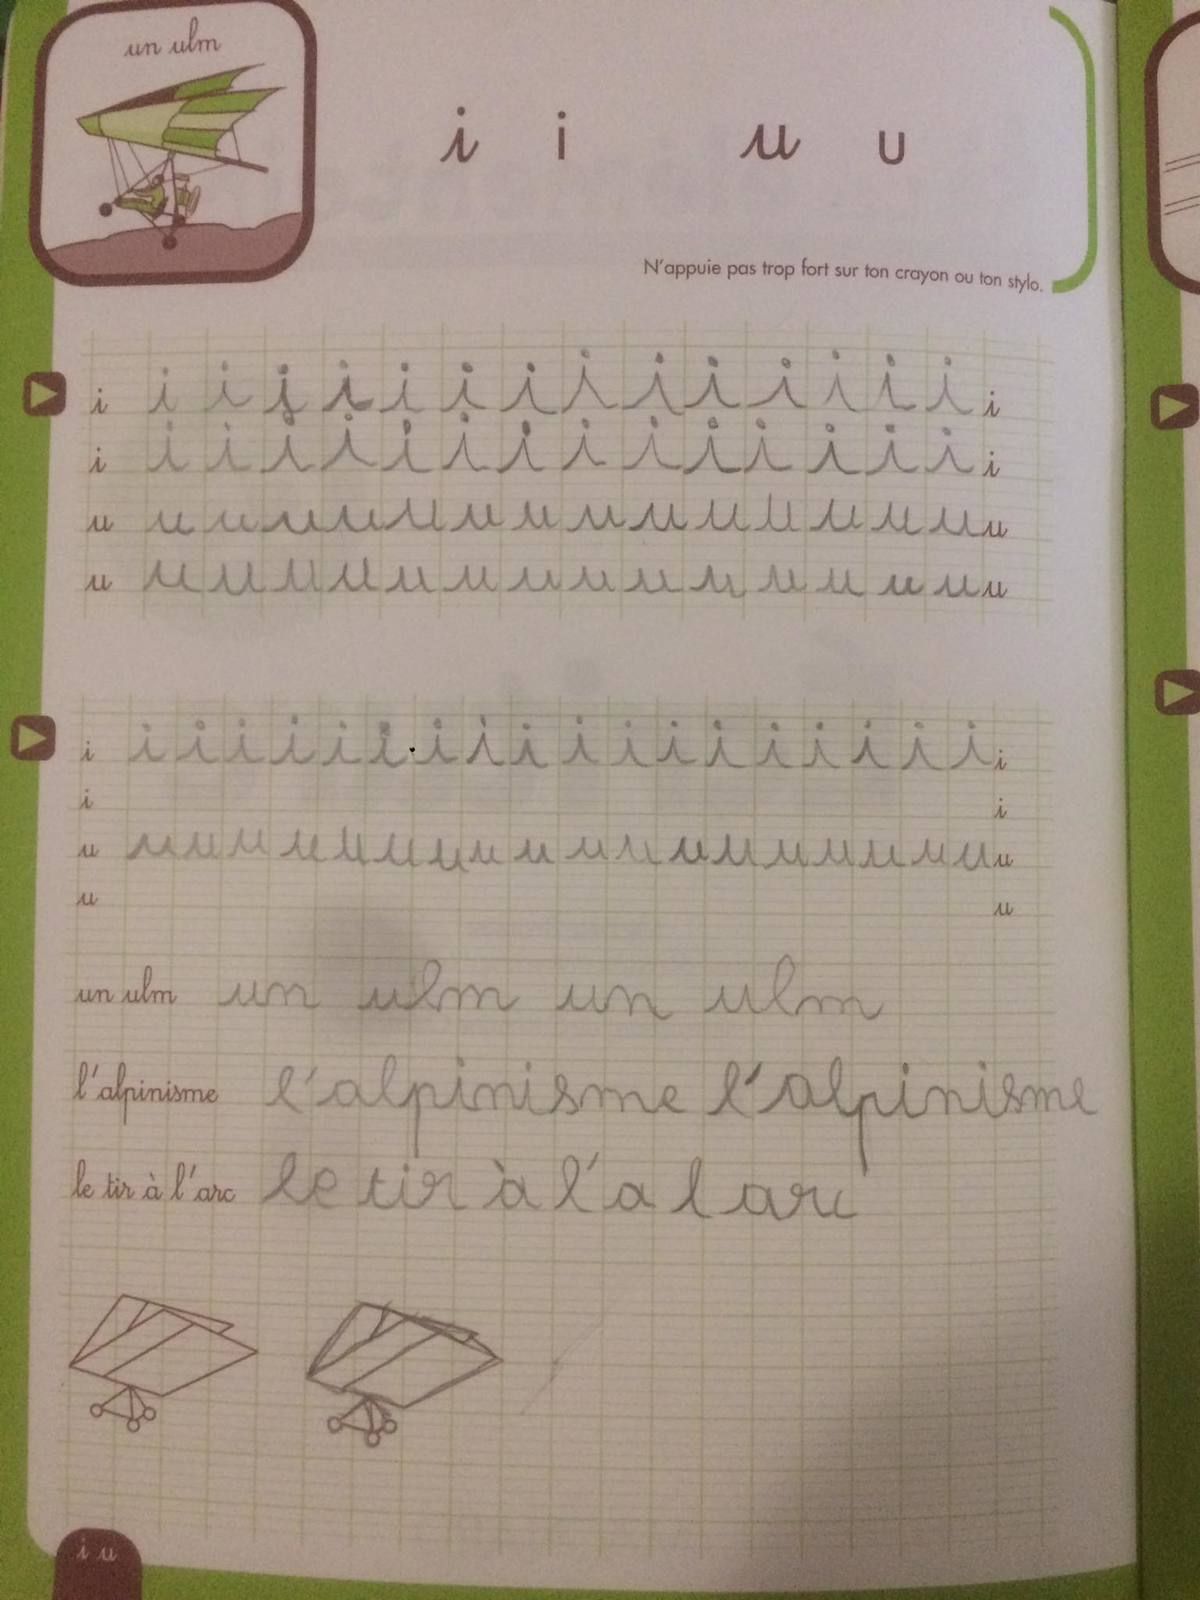 un ulm
i i u u
N'appuie pas trop fort sur ton crayon ou ton stylo.
i i i i i i i i i i i i i i i i
i i i i i i i i i i i i i i i i
u u u u u u u u u u u u u u u u
u u u u u u u u u u u u u u u u
i i i i i i i i i i i i i i i i i i i i
i i
u u u u u u u u u u u u u u u u u u u u
u u
un ulm un ulm un ulm
l'alpinisme l'alpinisme l'alpinisme
le tir à l'arc le tir à l'a l arc
i u